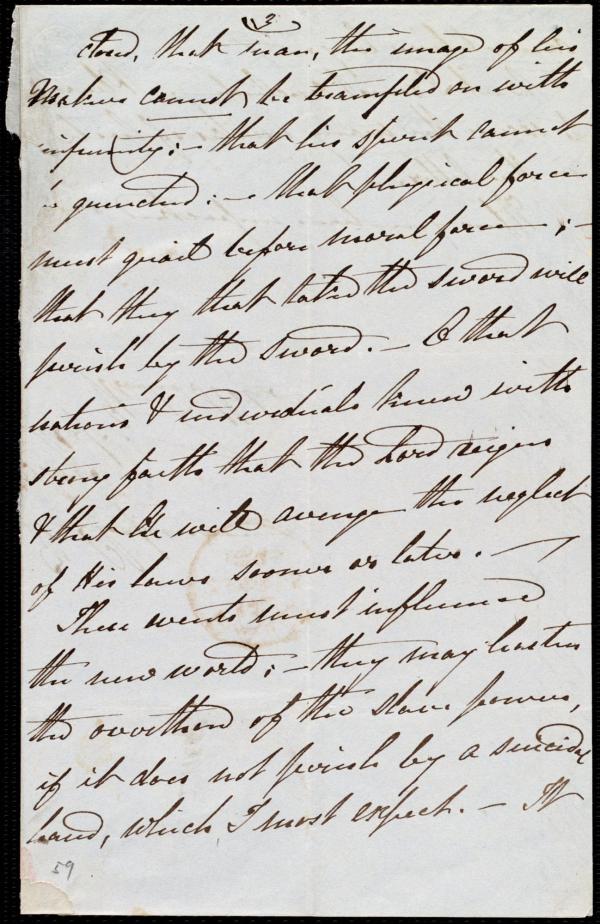 2
cloud, that man, the image of his
Maker cannot be trampled on with
impunity; – that his spirit cannot
be quenched: – that physical force
must quail before moral force; –
that they that take the sword will
perish by the sword. – O that
nations & individuals knew with
strong faith that the Lord reigns
& that He will avenge the neglect
of His laws sooner or later. –
These events must influence
the new world; – they may hasten
the overthrow of the slave power,
if it does not perish by a suicidal
hand, which I most expect. – It
59